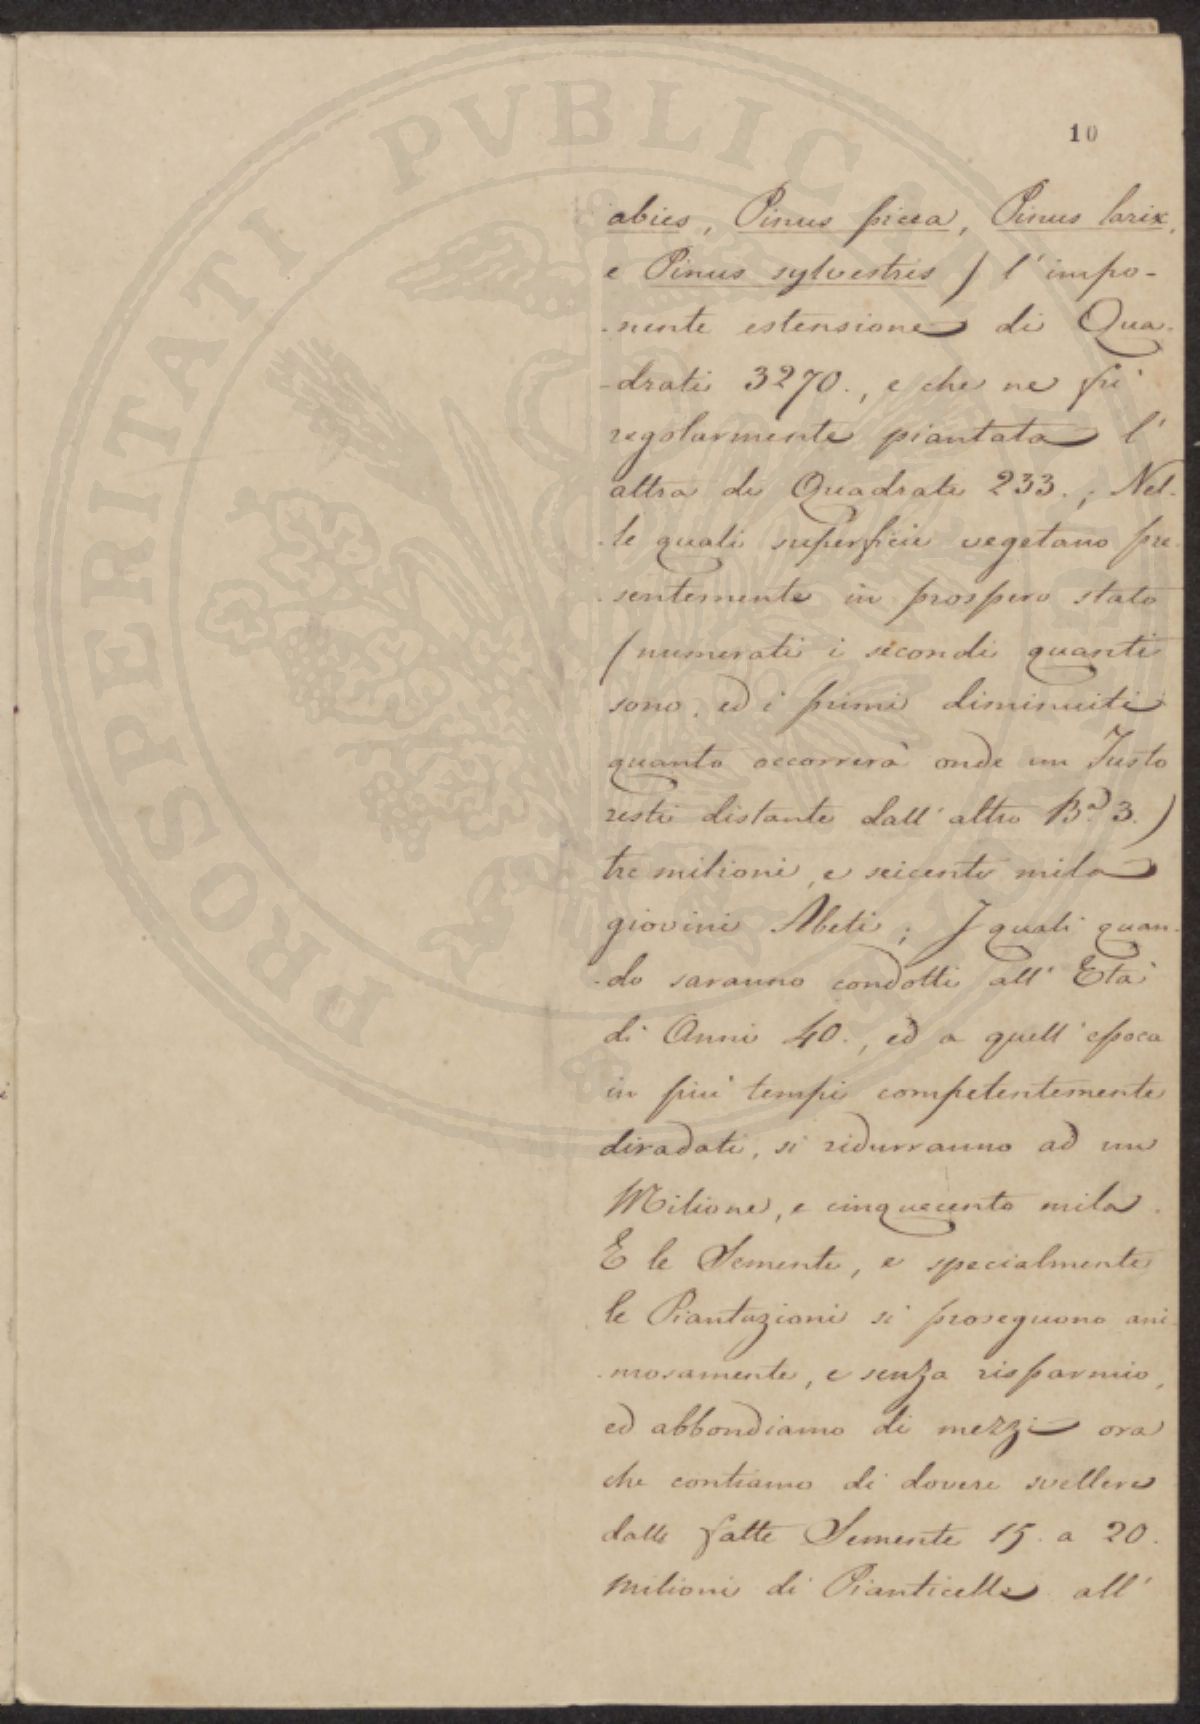 PROSPERITATI PVBLICAE
10
abies, Pinus picea, Pinus larix,
e Pinus sylvestris) l'impo-
-nente estensione di Qua-
-drati 3270., e che ne fù
regolarmente piantata l'
altra di Quadrati 233.; Nel-
-le quali superficie vegetano pre
-sentemente in prospero stato
(numerati i secondi quanti
sono, ed i primi diminuiti
quanto occorrerà onde un Fusto
resti distante dall'altro B.a 3.)
tre milioni, e seicento mila
giovini Abeti; I quali quan-
-do saranno condotti all'Età
di Anni 40., ed a quell'epoca
in più tempi competentemente
diradati, si ridurranno ad un
Milione, e cinquecento mila.
E le Semente, e specialmente
le Piantazioni si proseguono ani
-mosamente, e senza risparmio,
ed abbondiamo di mezzi ora
che contiamo di dovere svellere
dalle fatte Semente 15. a 20.
Milioni di Pianticelle all'